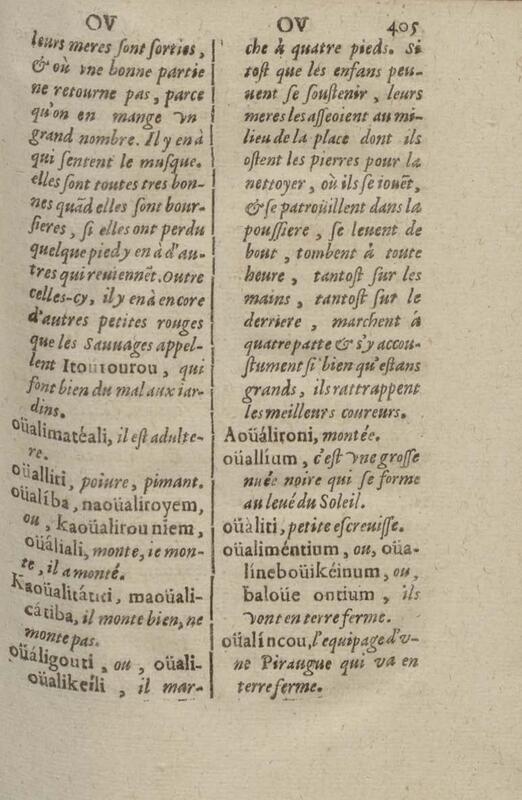 OV
leurs meres sont sorties,
& où vne bonne partie
ne retourne pas, parce
qu'on en mange vn
grand nombre. Il y en à
qui sentent le musque.
elles sont toutes tres bon-
nes quãd elles sont bour-
sieres, si elles ont perdu
quelque pied y en à d'au-
tres qui reuiennẽt. Outre
celles-cy, il y en à encore
d'autres petites rouges
que les Sauuages appel-
lent Itoútourou, qui
font bien du mal aux iar-
dins.
oüalimatéali, il est adulte-
re.
oüálliti, poiure, pimant.
oüalíba, naoüaliroyem,
ou, kaoüalirou niem,
oüáliali, monte, ie mon-
te, il a monté.
Kaoüalitátiti, maoüali-
cátiba, il monte bien, ne
monte pas.
oüáligouti, ou, oüali-
oüalikeíli, il mar-
OV 405
che à quatre pieds. Si
tost que les enfans peu-
uent se soustenir, leurs
meres les asseoient au mi-
lieu de la place dont ils
ostent les pierres pour la
nettoyer, où ils se iouẽt,
& se patroüillent dans la
poussiere, se leuent de
bout, tombent à toute
heure, tantost sur les
mains, tantost sur le
derriere, marchent à
quatre patte & s'y accou-
stument si bien qu'estans
grands, ils rattrappent
les meilleurs coureurs.
Aoüálironi, montée.
oüallíum, c'est vne grosse
nuée noire qui se forme
au leué du Soleil.
oüàliti, petite escreuisse.
oüaliméntium, ou, oüa-
líneboüikéinum, ou,
baloüe ontium, ils
vont en terre ferme.
oüalíncou, l'equipage d'v-
ne Piraugue qui va en
terre ferme.